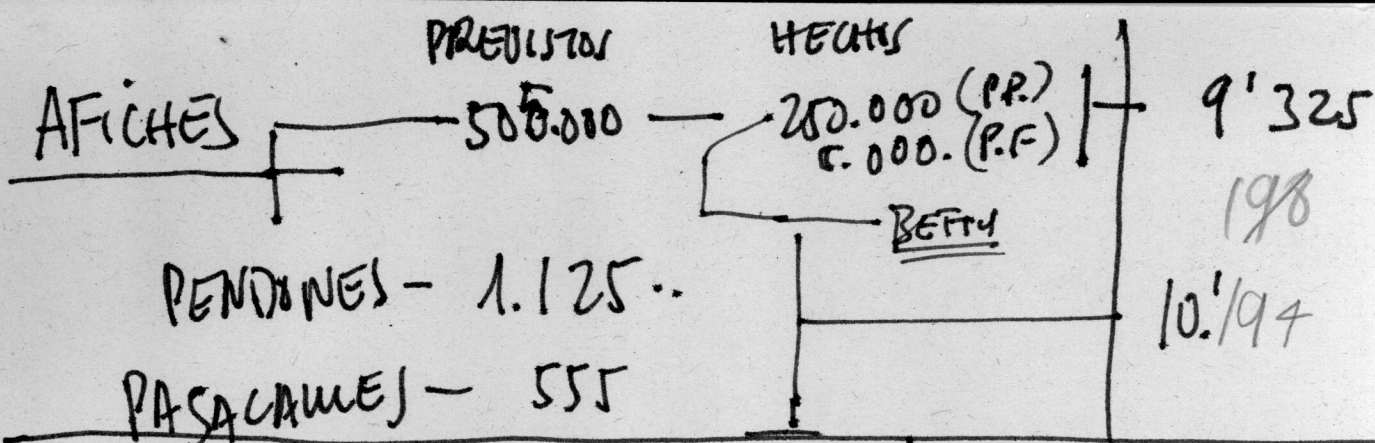 PREVISTOS HECHOS
AFICHES 505.000 — 250.000 (P.P.) 9'325
5.000. (P.F)
198
BETTY
PENDONES - 1.125.. 10.'194
PASACALLES - 555